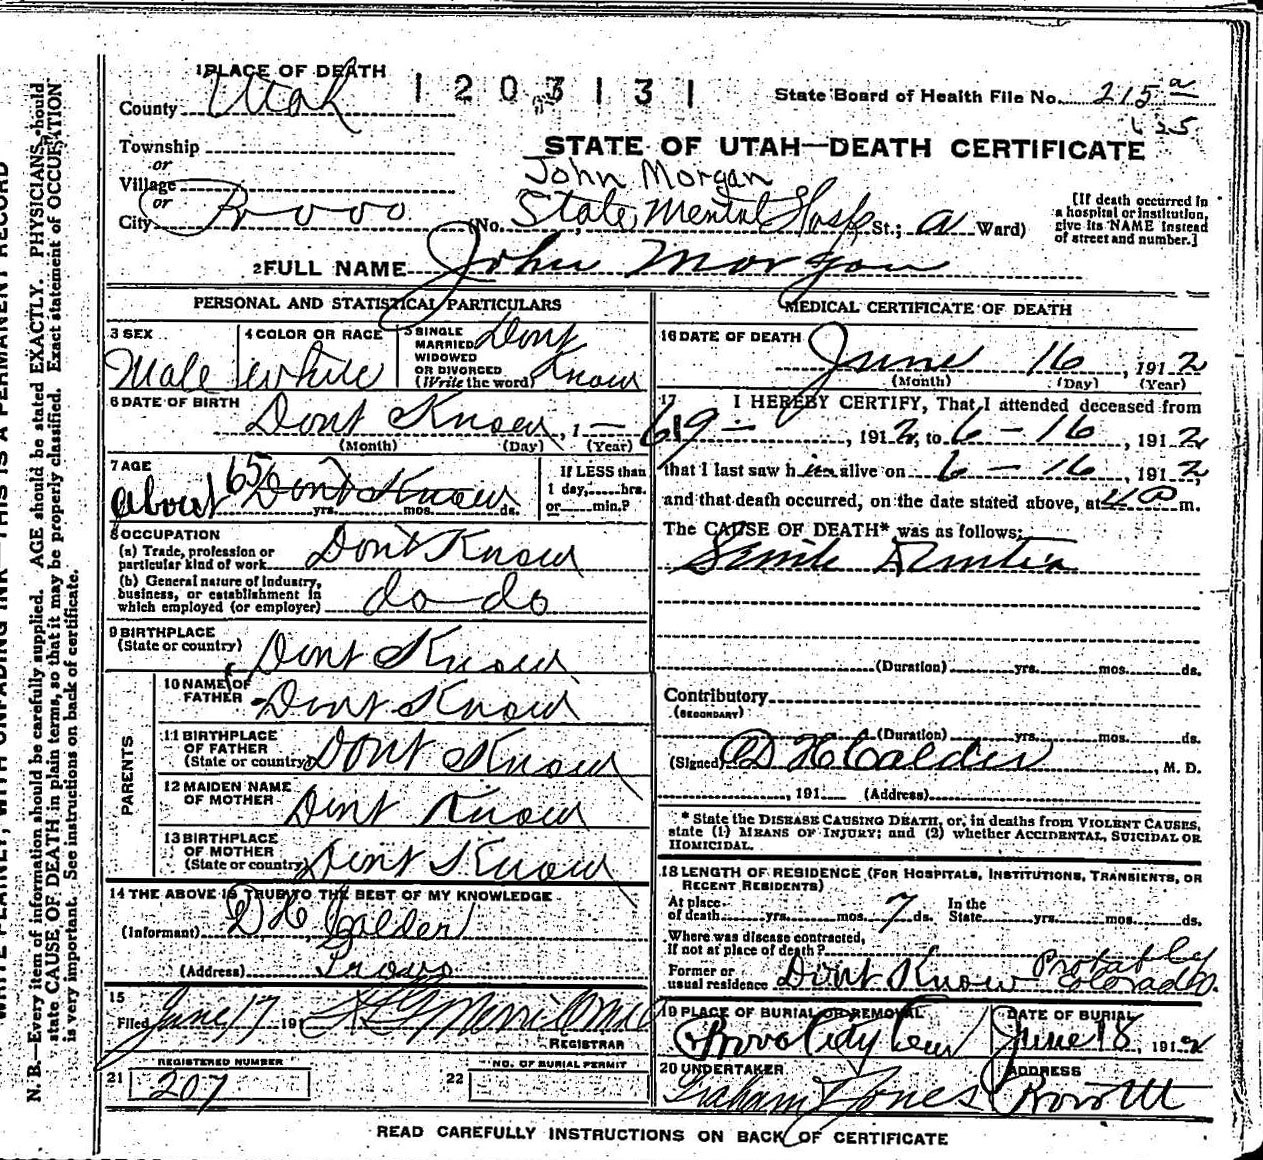 1 PLACE OF DEATH
1203131
County Utah
State Board of Health File No. 215 a
Township
STATE OF UTAH—DEATH CERTIFICATE
or
John Morgan
Village
or
City Provo (No. State Mental Hosp St.; a Ward)
[If death occurred in a hospital or institution, give its NAME instead of street and number.]
2 FULL NAME John Morgan
PERSONAL AND STATISTICAL PARTICULARS
3 SEX Male
4 COLOR OR RACE white
5 SINGLE MARRIED WIDOWED OR DIVORCED (Write the word) Dont Know
6 DATE OF BIRTH Dont Know, 1—
(Month) (Day) (Year)
7 AGE about 65 Dont Know
yrs. mos. ds.
If LESS than 1 day, hrs. or min.?
8 OCCUPATION
(a) Trade, profession or particular kind of work Dont Know
(b) General nature of industry, business, or establishment in which employed (or employer) do do
9 BIRTHPLACE (State or country) Dont Know
PARENTS
10 NAME OF FATHER Dont Know
11 BIRTHPLACE OF FATHER (State or country) Dont Know
12 MAIDEN NAME OF MOTHER Dont Know
13 BIRTHPLACE OF MOTHER (State or country) Dont Know
14 THE ABOVE IS TRUE TO THE BEST OF MY KNOWLEDGE
(Informant) D H Calder
(Address) Provo
15
Filed June 17 191
REGISTRAR
REGISTERED NUMBER
21 207
NO. OF BURIAL PERMIT
22
MEDICAL CERTIFICATE OF DEATH
16 DATE OF DEATH June 16, 1912
(Month) (Day) (Year)
17 I HEREBY CERTIFY, That I attended deceased from
6 9 —, 1912, to 6 - 16, 1912
that I last saw him alive on 6 - 16, 1912,
and that death occurred, on the date stated above, at 4 P m.
The CAUSE OF DEATH* was as follows:
Senile Dementia
(Duration) yrs. mos. ds.
Contributory
(SECONDARY)
(Duration) yrs. mos. ds.
(Signed) D H Calder, M. D.
, 191 (Address)
* State the DISEASE CAUSING DEATH, or, in deaths from VIOLENT CAUSES,
state (1) MEANS OF INJURY; and (2) whether ACCIDENTAL, SUICIDAL OR
HOMICIDAL.
18 LENGTH OF RESIDENCE (FOR HOSPITALS, INSTITUTIONS, TRANSIENTS, OR
RECENT RESIDENTS)
At place of death yrs. mos. 7 ds. In the State yrs. mos. ds.
Where was disease contracted,
If not at place of death?
Former or usual residence Dont Know Probably Colorado.
19 PLACE OF BURIAL OR REMOVAL Provo City Cem
DATE OF BURIAL June 18, 1912
20 UNDERTAKER Graham & Jones
ADDRESS Provo Ut
READ CAREFULLY INSTRUCTIONS ON BACK OF CERTIFICATE
WRITE PLAINLY, WITH UNFADING INK—THIS IS A PERMANENT RECORD
N. B.—Every item of information should be carefully supplied. AGE should be stated EXACTLY. PHYSICIANS should
state CAUSE OF DEATH in plain terms, so that it may be properly classified. Exact statement of OCCUPATION
is very important. See instructions on back of certificate.